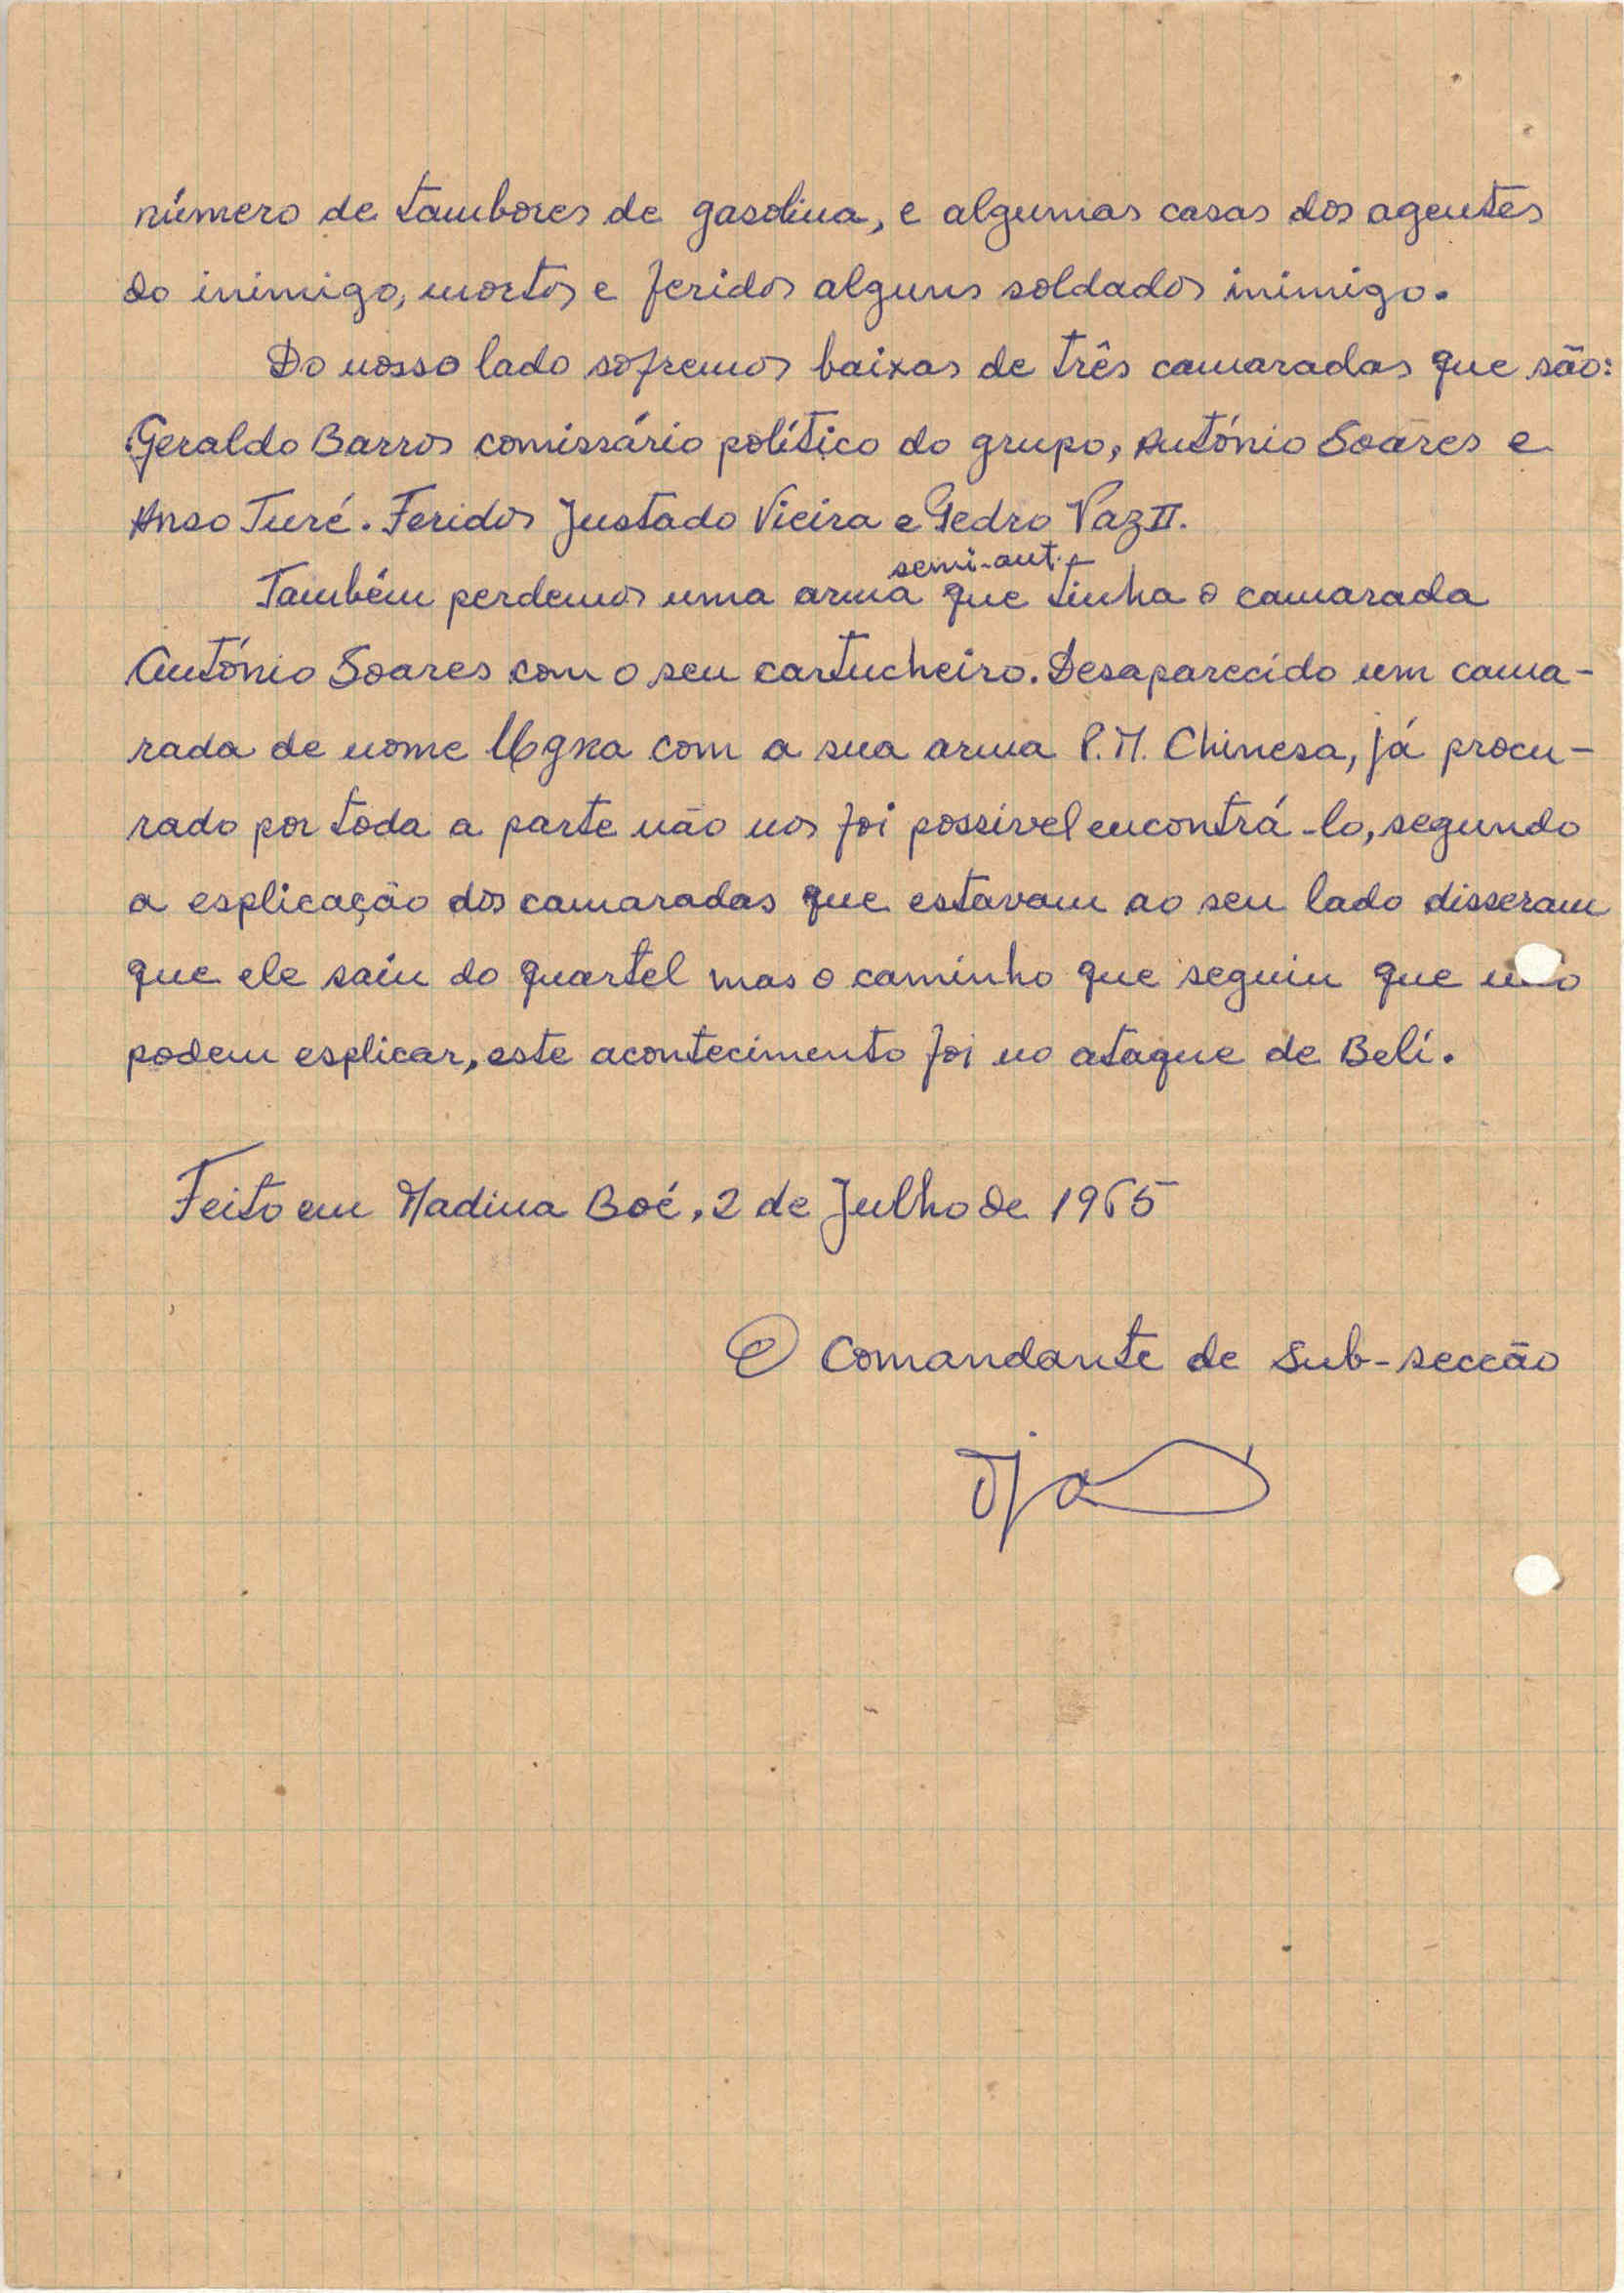 número de tambores de gasolina, e algumas casas dos agentes
do inimigo, mortos e feridos alguns soldados inimigo.
Do nosso lado sofremos baixas de três camaradas que são:
Geraldo Barros comissário político do grupo, António Soares e
Anso Turé. Feridos Justado Vieira e Pedro Vaz II.
semi-aut.
Também perdemos uma arma que tinha o camarada
António Soares com o seu cartucheiro. Desaparecido um cama-
rada de nome com a sua arma P.M. Chinesa, já procu-
rado por toda a parte não nos foi possivel encontrá-lo, segundo
a esplicação dos camaradas que estavam ao seu lado disseram
que ele saíu do quartel mas o caminho que seguiu que não
podem esplicar, este acontecimento foi no ataque de Beli.
Feito em Madina Boé, 2 de Julho de 1965
O Comandante de Sub-secção